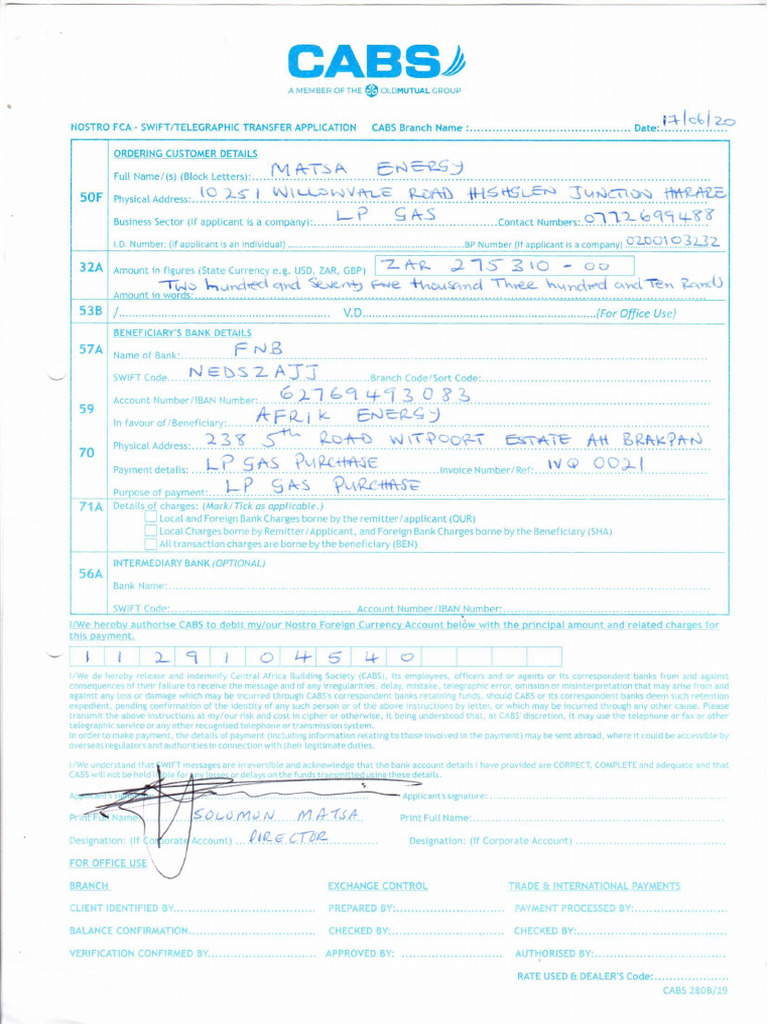 CABS
A MEMBER OF THE OLDMUTUAL GROUP
NOSTRO FCA - SWIFT/TELEGRAPHIC TRANSFER APPLICATION CABS Branch Name : Date: 17/06/20
ORDERING CUSTOMER DETAILS
50F
Full Name/(s) (Block Letters): MATSA ENERGY
Physical Address: 10251 WILLOWVALE ROAD HIGHGLEN JUNCTION HARARE
Business Sector (If applicant is a company): LP GAS Contact Numbers: 0772699488
I.D. Number: (if applicant is an individual) BP Number (If applicant is a company) 0200103232
32A Amount in figures (State Currency e.g. USD, ZAR, GBP) ZAR 275310-00
Two hundred and Seventy five thousand Three hundred and Ten Rands
Amount in words:
53B / V.D. (For Office Use)
BENEFICIARY'S BANK DETAILS
57A Name of Bank: FNB
SWIFT Code NEDSZAJJ Branch Code/Sort Code:
59 Account Number/IBAN Number: 62769493083
In favour of/Beneficiary: AFRIK ENERGY
70 Physical Address: 238 5th ROAD WITPOORT ESTATE AH BRAKPAN
Payment details: LP GAS PURCHASE Invoice Number/Ref: IVQ 0021
Purpose of payment: LP GAS PURCHASE
71A Details of charges: (Mark/Tick as applicable.)
Local and Foreign Bank Charges borne by the remitter/applicant (OUR)
Local Charges borne by Remitter/Applicant, and Foreign Bank Charges borne by the Beneficiary (SHA)
All transaction charges are borne by the beneficiary (BEN)
56A INTERMEDIARY BANK (OPTIONAL)
Bank Name:
SWIFT Code: Account Number/IBAN Number:
I/We hereby authorise CABS to debit my/our Nostro Foreign Currency Account below with the principal amount and related charges for
this payment.
1 1 2 9 1 0 4 5 4 0
I/We do hereby release and indemnify Central Africa Building Society (CABS), its employees, officers and or agents or its correspondent banks from and against
consequences of their failure to receive the message and of any irregularities, delay, mistake, telegraphic error, omission or misinterpretation that may arise from and
against any loss or damage which may be incurred through CABS's correspondent banks retaining funds, should CABS or its correspondent banks deem such retention
expedient, pending confirmation of the identity of any such person or of the above instructions by letter, or which may be incurred through any other cause. Please
transmit the above instructions at my/our risk and cost in cipher or otherwise, it being understood that, at CABS' discretion, it may use the telephone or fax or other
telegraphic service or any other recognised telephone or transmission system.
In order to make payment, the details of payment (including information relating to those involved in the payment) may be sent abroad, where it could be accessible by
overseas regulators and authorities in connection with their legitimate duties.
I/We understand that SWIFT messages are irreversible and acknowledge that the bank account details I have provided are CORRECT, COMPLETE and adequate and that
CABS will not be held liable for any losses or delays on the funds transmitted using these details.
Applicant's signature: Applicant's signature:
Print Full Name SOLOMON MATSA Print Full Name:
Designation: (If Corporate Account) DIRECTOR Designation: (If Corporate Account)
FOR OFFICE USE
BRANCH EXCHANGE CONTROL TRADE & INTERNATIONAL PAYMENTS
CLIENT IDENTIFIED BY PREPARED BY: PAYMENT PROCESSED BY:
BALANCE CONFIRMATION CHECKED BY: CHECKED BY:
VERIFICATION CONFIRMED BY APPROVED BY: AUTHORISED BY:
RATE USED & DEALER'S Code:
CABS 280B/19